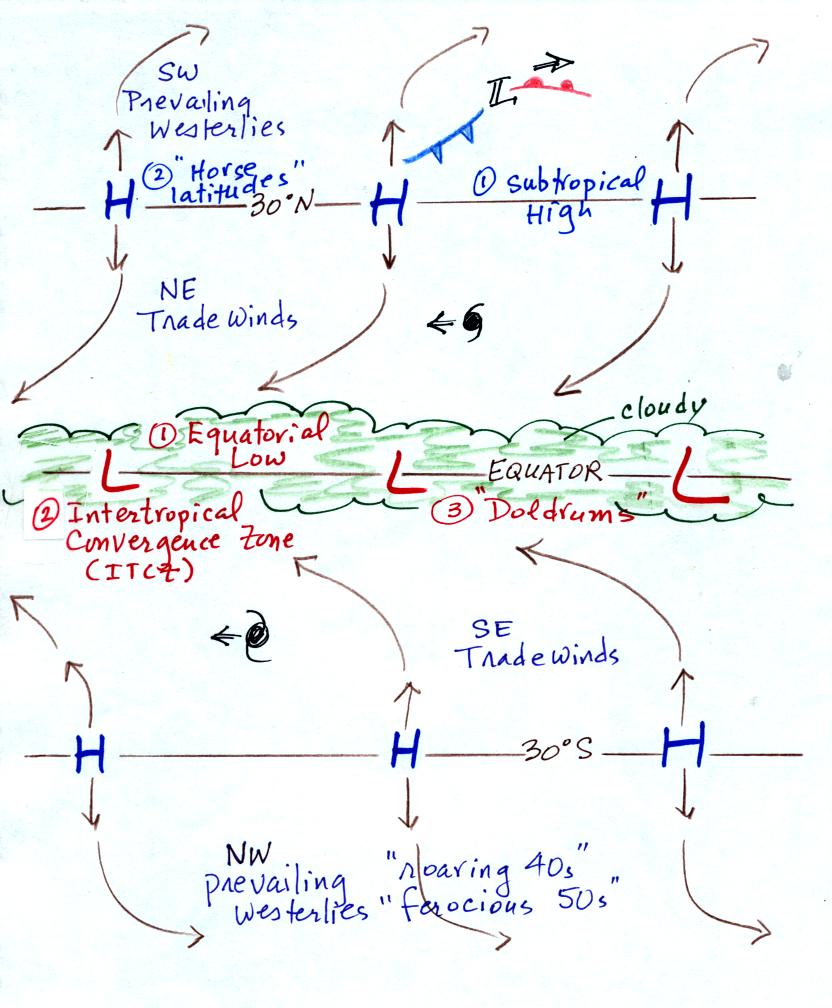 SW
Prevailing
Westerlies
L
② "Horse
latitudes"
① Subtropical
High
H
30°N
H
H
NE
Trade Winds
cloudy
① Equatorial
Low
L
L
EQUATOR
L
② Intertropical
Convergence Zone
(ITCZ)
③ "Doldrums"
SE
Trade winds
H
H
30°S
H
NW
prevailing
westerlies
"roaring 40s"
"ferocious 50s"